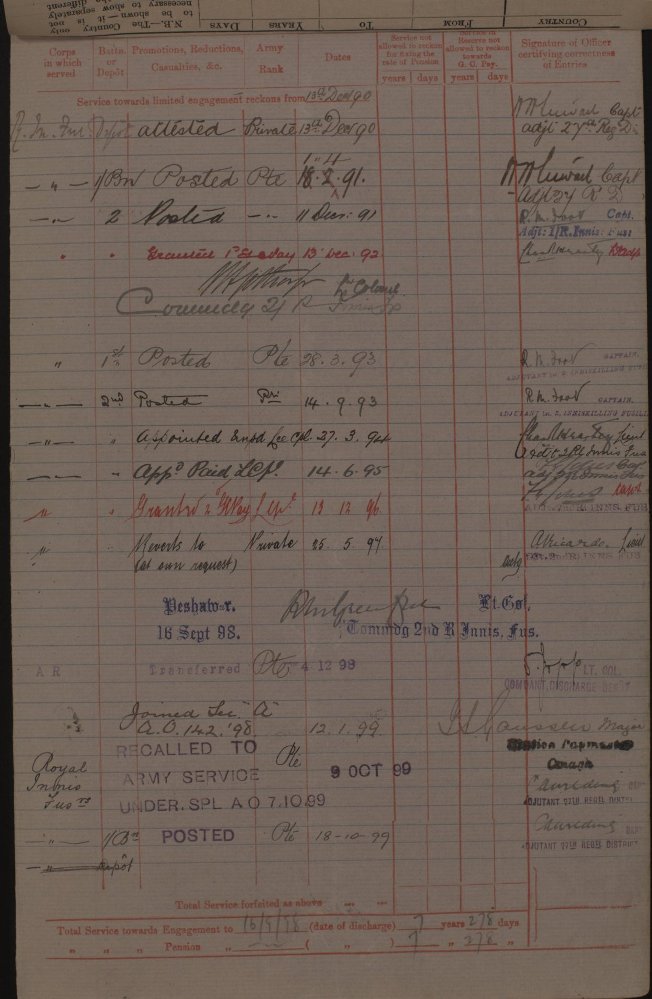 COUNTRY FROM TO YEARS DAYS
N.B.—The Country only to be shown—it is not necessary to show separately the different
Corps in which served
Batts. or Depôt
Promotions, Reductions, Casualties, &c.
Army Rank
Dates
Service not allowed to reckon for fixing the rate of Pension
years days
Service in Reserve not allowed to reckon towards G. C. Pay.
years days
Signature of Officer certifying correctness of Entries
Service towards limited engagement reckons from 13th Decr 90
R. In. Fus. Depot attested Private 13th Decr 90 Capt
adjt 27th Reg D
1.4
— „ — 1/Bn Posted Pte 18.2.91. Capt
Adjt 27 R D
— „ — 2 Posted — „ — 11 Decr: 91 R. M. Foot Capt.
Adjt: 1/R. Innis: Fus:
„ „ Granted 1st G Pay 13 Dec. 92
Lt Colonel
Commdg 2/ R Innis Fus
„ 1st Posted Pte 28.3.93 R. M. Foot CAPTAIN.
ADJUTANT INNISKILLING FUSIL
— „ — 2nd Posted Pte 14.9.93 R. M. Foot CAPTAIN.
ADJUTANT INNISKILLING FUSIL
— „ — „ Appointed Unpd Lce Cpl. 27.3.94 Lieut
Adjt 2 R Innis Fus
— „ — „ Appd Paid L Cpl. 14.6.95
„ „ Granted 2nd G Pay L Cpl 13 12 96
R. INNS. FUS
„ „ Reverts to Private 25.5.97 A Ricardo. Lieut
(at own request) actg R. INNS FUS
Peshawar. Lt Col,
16 Sept 98. Commdg 2nd R Innis, Fus.
A R Transferred Pte 4 12 98 LT. COL.
COMDANT, DISCHARGE DEPOT
Joined Sec "A"
A.O. 142. '98 12.1.99 Major
Station Paymaster
Omagh
Royal Innis Fusrs
RECALLED TO Pte
ARMY SERVICE 9 OCT 99
UNDER. SPL A O 7.10.99
ADJUTANT 27TH REGL DISTRICT
— „ — 1/Bn POSTED Pte 18-10-99
ADJUTANT 27TH REGL DISTRICT
— „ — Depôt
Total Service forfeited as above
Total Service towards Engagement to 16/9/98 (date of discharge) 7 years 278 days
„ „ „ Pension „ — ( „ ) 7 „ 278 „